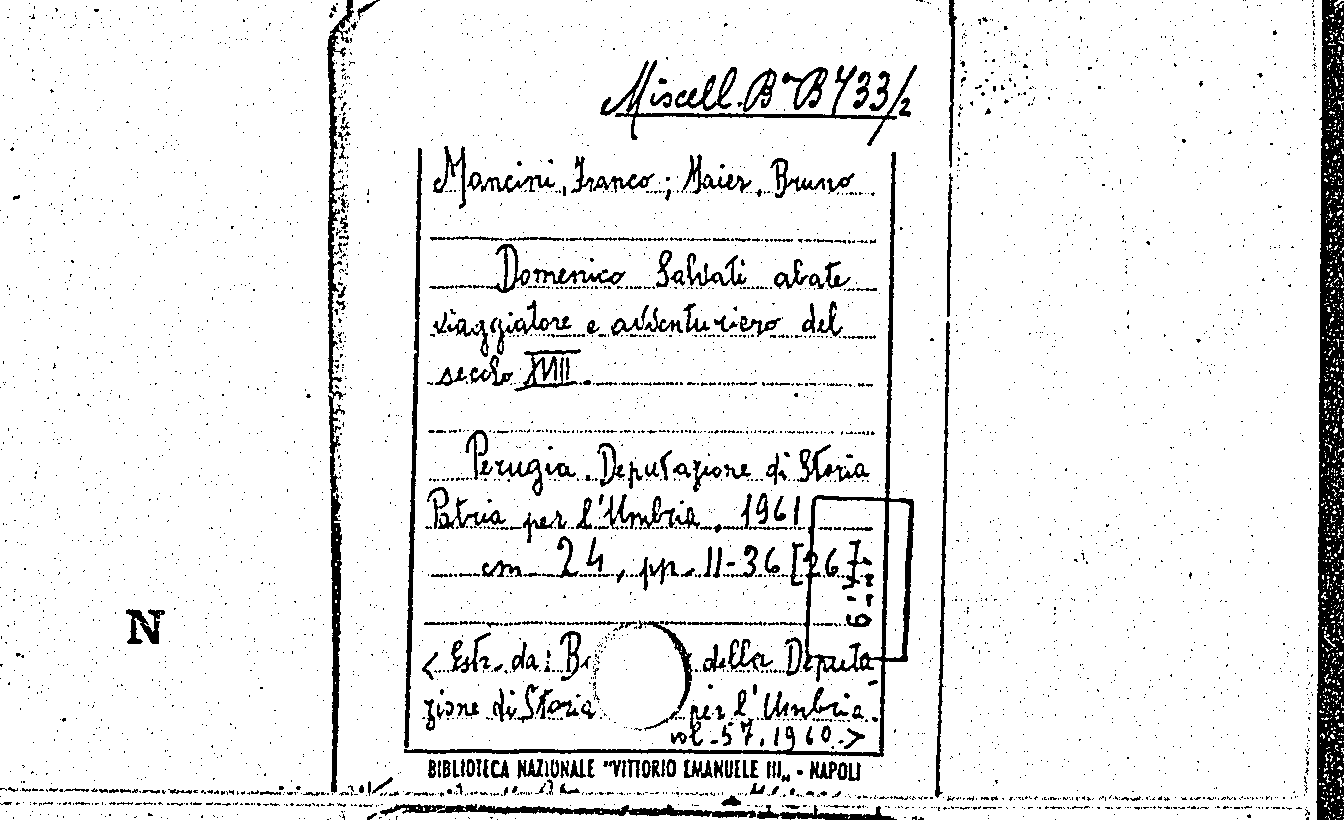 Miscell. Bª B 433/2
Mancini, Franco; Maier, Bruno
Domenico Salvati abate
viaggiatore e avventuriero del
secolo XVIII.
Perugia. Deputazione di Storia
Patria per l'Umbria, 1961
cm. 24, pp. 11-36 [26].
< Estr. da: B della Deputa-
zione di Storia per l'Umbria.
vol. 57. 1960. >
BIBLIOTECA NAZIONALE "VITTORIO EMANUELE III„ - NAPOLI
N